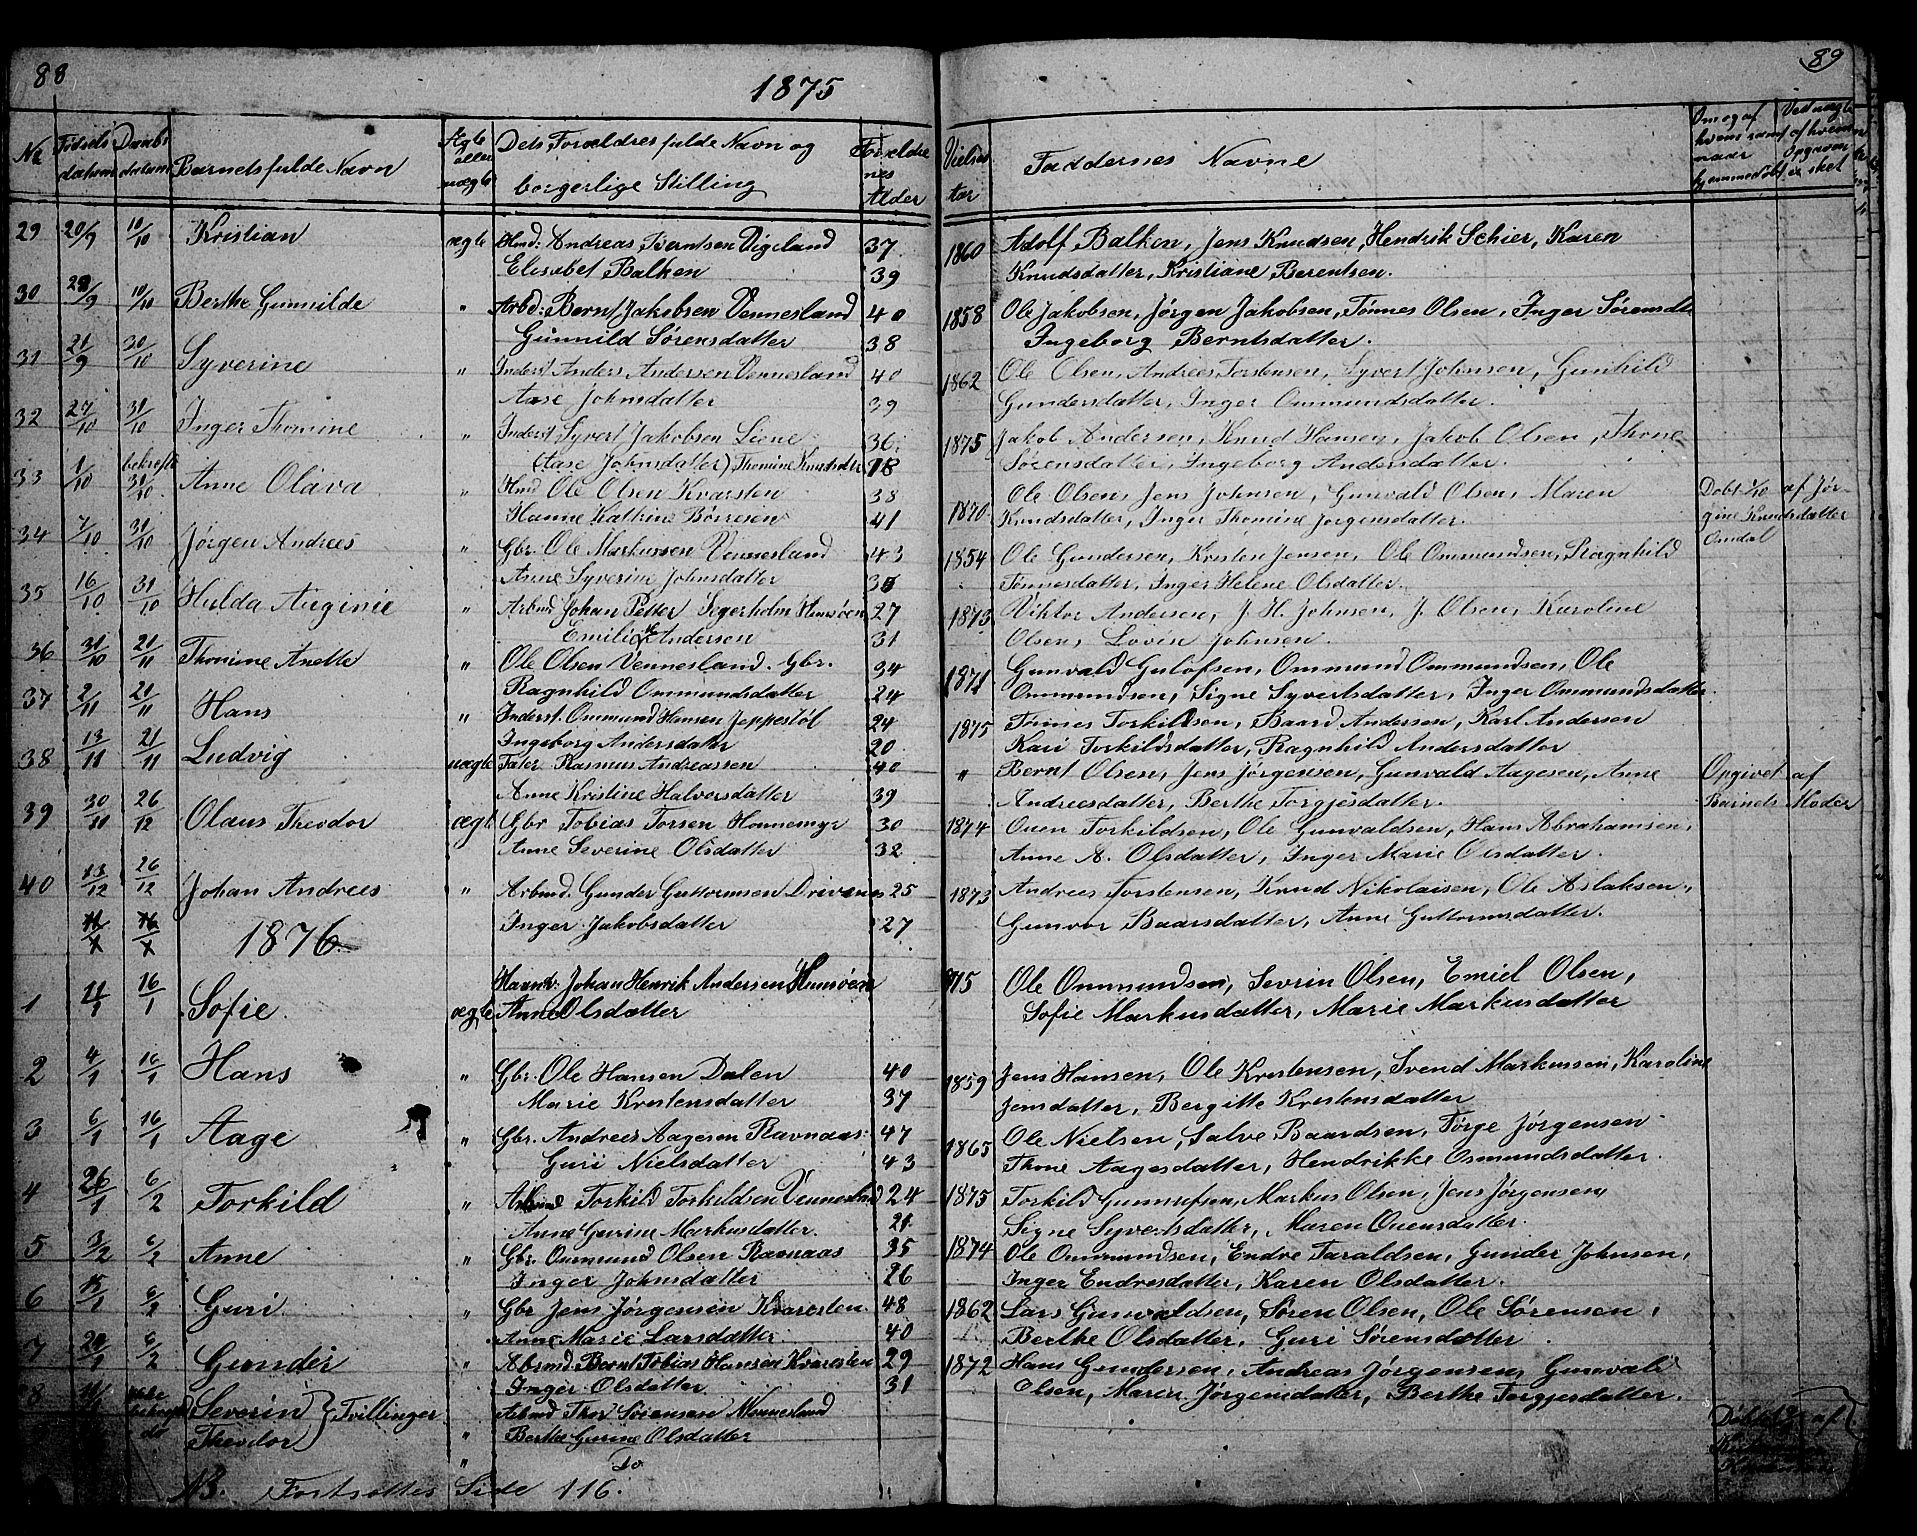 88
1875
89
No Fødsels datum Daabs datum Barnets fulde Navn Ægte eller uægte Dets Forældres fulde Navn og borgerlige Stilling Forældrenes Alder Vielses aar Faddernes Navne
29 20/9 10/10 Kristian ægte Hmd: Andreas Berntsen Vigeland 37 1860 Adolf Balken, Jens Knudsen, Hendrik Schier, Karen
Elisabet Balken 39 Knudsdatter, Kristiane Berentsen.
30 29/9 10/10 Berthe Gunnilde " Arbd: Bernt Jakobsen Vennesland 40 1858 Ole Jakobsen, Jörgen Jakobsen, Tønnes Olsen, Inger Sørensdt
Gunnild Sørensdatter 38 Ingeborg Berntsdatter.
31 21/9 30/10 Syverine " Inderst Anders Andersen Vennesland 40 1862 Ole Olsen, Andrees Torstensen, Syvert Johnsen, Gunhild
Aase Johnsdatter 39 Gundersdatter, Inger Ommundsdatter.
32 27/10 31/10 Inger Thomine " Inderst Syvert Jakobsen Liene 36 1875 Jakob Andersen, Knud Hansen, Jakob Olsen, Thone
(Aase Johnsdatter) Thomine 18 Sørensdatter, Ingeborg Andersdatter.
33 1/10 bekræft 31/10 Anne Olava " Hmd Ole Olsen Kvarsten 38 1870 Ole Olsen, Jens Johnsen, Gunvald Olsen, Maren Døbt 3/10 af Jør-
Hanne Katrine Børresen 41 Knudsdatter, Inger Thomine Jørgensdatter. gine Knudsdatter
34 7/10 31/10 Jørgen Andrees " Gbr. Ole Markussen Vennesland 43 1854 Ole Gundersen, Kristen Jensen, Ole Ommundsen, Ragnhild Omdal
Anne Syverine Johnsdatter Tønnesdatter, Inger Helene Olsdatter.
35 16/10 31/10 Hulda Auginie " Arbmd Johan Petter Segerholm Hunsøen 27 1873 Viktor Andersen, J. H. Johnsen, J. Olsen, Karoline
Emilie Andersen 31 Olsen, Lovin Johnsen
36 31/10 21/11 Thomine Anette " Ole Olsen Vennesland. Gbr. 34 1871 Gunvald Gulofsen, Ommund Ommundsen, Ole
Ragnhild Ommundsdatter 24 Ommundsen, Signe Syvertsdatter, Inger Ommundsdatter.
37 2/11 21/11 Hans " Inderst. Ommund Hansen Jeppestøl 24 1875 Tønnes Torkildsen, Baard Andersen, Karl Andersen
Ingeborg Andersdatter 20 Kari Torkildsdatter, Ragnhild Andersdatter
38 13/11 21/11 Ludvig uægte Tater Rasmus Andreassen 40 " Bernt Olsen, Jens Jörgensen, Gunvald Aagesen, Anne Opgivet af
Anne Kristine Halvorsdatter 39 Andreesdatter, Berthe Torgjesdatter. Barnets Moder
39 30/11 26/12 Olaus Theodor ægte Gbr Tobias Torsen Honnemyr 30 1874 Ouen Torkildsen, Ole Gunvaldsen, Hans Abrahamsen,
Anne Severine Olsdatter 32 Anne A. Olsdatter, Inger Marie Olsdatter.
40 13/12 26/12 Johan Andrees " Arbmd. Gunder Guttormsen Drivenes 25 1873 Andrees Torstensen, Knud Nikolaisen, Ole Aslaksen,
Inger Jakobsdatter 27 Gunvor Baarsdatter, Anne Guttormsdatter.
1876
1 16/1 Sofie. ægte Johan Henrik Andersen Hunsøen Ole Ommundsen, Severin Olsen, Emiel Olsen,
Anne Olsdatter Sofie Markusdatter, Marie Markusdatter
2 4/1 16/1 Hans " Gbr. Ole Hansen Dalen 40 1859 Jens Hansen, Ole Kristensen, Svend Markussen, Karoline
Marie Kristensdatter 37 Jensdatter, Bergitte Kristensdatter
3 6/1 16/1 Aage " Gbr. Andrees Aagesen Ravnaas 47 1865 Ole Nielsen, Salve Baardsen, Tørge Jørgensen
Guri Nielsdatter 43 Thone Aagesdatter, Hendrikke Osmundsdatter.
4 26/1 6/2 Torkild " Arbmd Torkild Torkildsen Vennesland 24 1875 Torkild Gunnufsen, Markus Olsen, Jens Jörgensen,
Anne Gurine Markusdatter. 21 Signe Syvertsdatter, Maren Ouensdatter.
5 3/2 6/2 Anne " Gbr. Ommund Olsen Ravnaas 35 1874 Ole Ommundsen, Endre Taraldsen, Gunder Johnsen,
Inger Johnsdatter 26 Inger Endresdatter, Karen Olsdatter.
6 15/1 6/2 Guri " Gbr Jens Jörgensen Kvaresten 48 1862 Lars Gunvaldsen, Søren Olsen, Ole Sørensen,
Anne Marie Larsdatter 40 Berthe Olsdatter, Guri Sørensdatter.
7 20/1 6/2 Gunder " Abmd. Bernt Tobias Hansen Kvaresten 29 1872 Hans Gundersen, Andreas Jørgensen, Gunvald
Inger Olsdatter 31 Olsen, Maren Jørgensdatter, Berthe Torgjesdatter.
8 Severin } Tvillinger Arbmd Thor Sørensen Mennesland
Theodor " Berthe Gurine Olsdatter Døbt af
" Do
NB. Fortsættes Side 116.